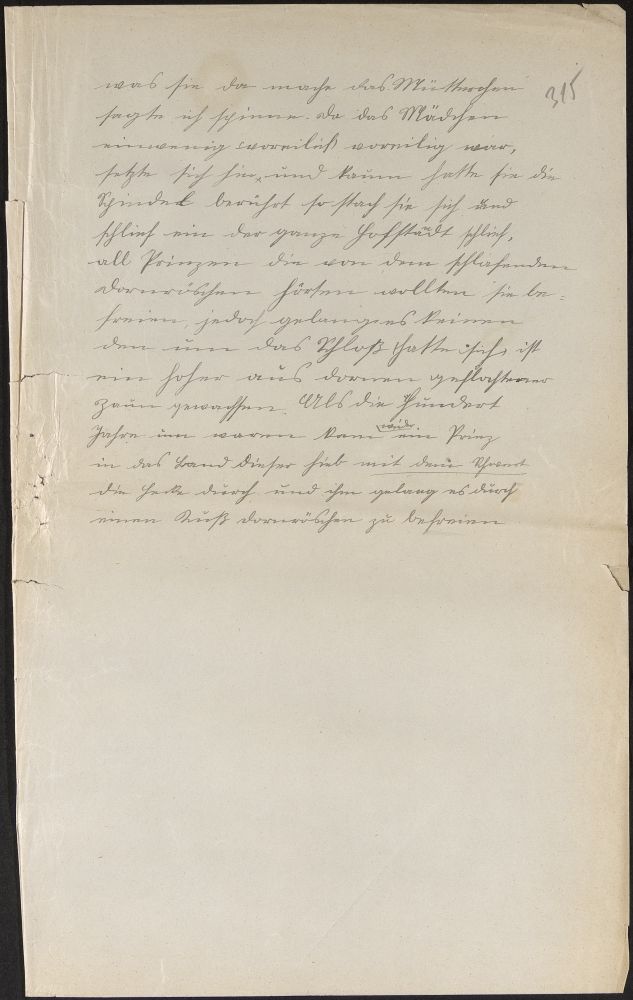 315
was sie da mache das Mütterchen
sagte ich spinne. Da das Mädchen
einwenig voreilig war,
setzte sich hin, und kaum hatte sie die
Spindel berührt so stach sie sich und
schlief ein der ganze Hofstadt schlief,
all Prinzen die von dem schlafenden
Dornröschen hörten wollten sie be=
freien, jedoch gelang es keinen
den um das Schloß hatte sich ist
ein hoher aus dornen geflochtener
Zaun gewachsen. Als die hundert
Jahre um waren kam wieder ein Prinz
in das Land dieser hieb mit dem Schwert
die Hecke durch und ihm gelang es durch
einen Kuß Dornröschen zu befreien